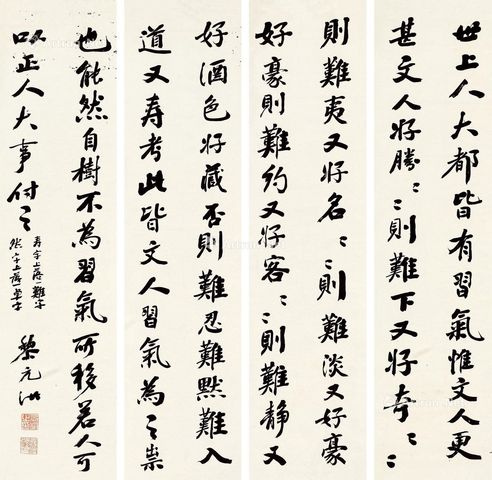 世上人大都皆有習氣惟文人更
甚文人好勝〻則難下又好奇〻
則難夷又好名〻則難淡又好豪
好豪則難約又好客〻則難靜又
好酒色好藏否則難忍難默難入
道又壽考此皆文人習氣為之祟
也能然自樹不為習氣所移若人可
以正人大事付之
壽字上落難字
然字上落卓字
黎元洪